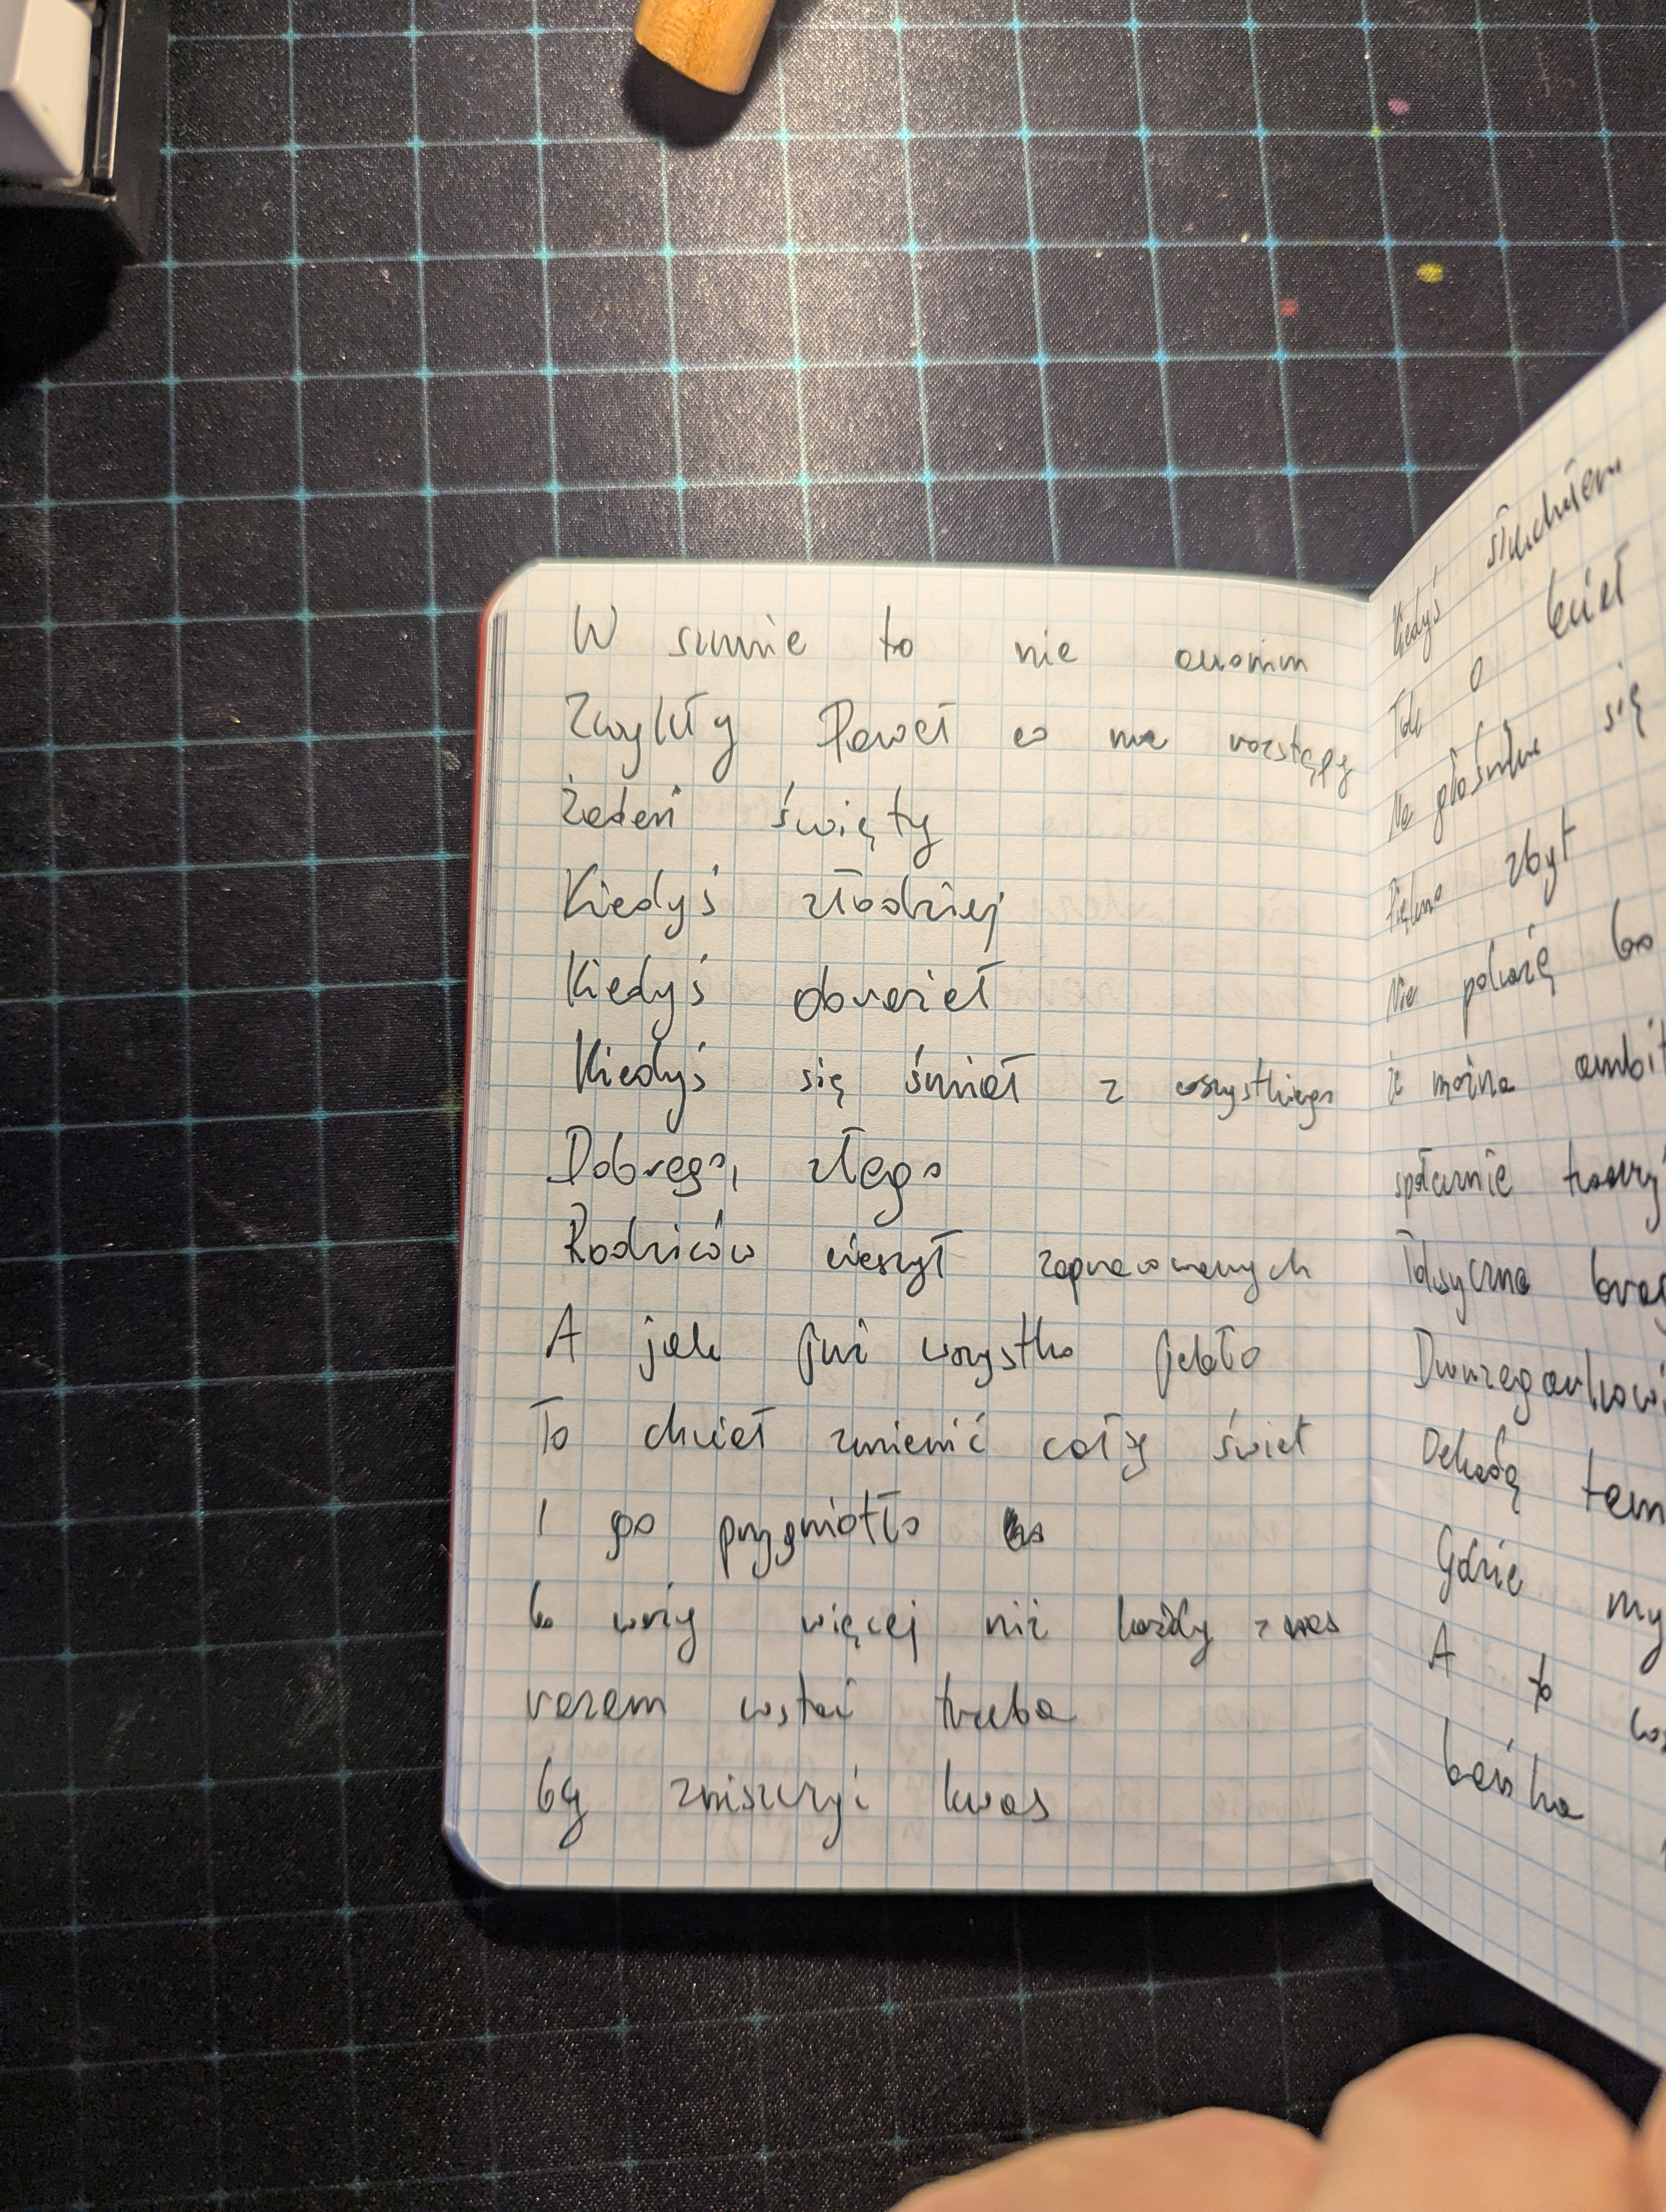 W sumie to nie anonim
Zwykły Paweł co ma rozstępy
Żaden święty
Kiedyś złodziej
Kiedyś obwieś
Kiedyś się śmiał z wszystkiego
Dobrego, złego
Rodziców cieszył zapracowanych
A jak już wszystko jebło
To chciał zmienić cały świat
I go przygniotło
bo wózy więcej niż każdy z nas
razem wstać trzeba
by zniszczyć kwas
Kiedyś słuchałem
Tak o
Na głośniku się
Piękno zbyt
Nie pokażę bo
że można ambit
społecznie tworzy
Toksyczna
Dekadą tem
Gdzie my
A to